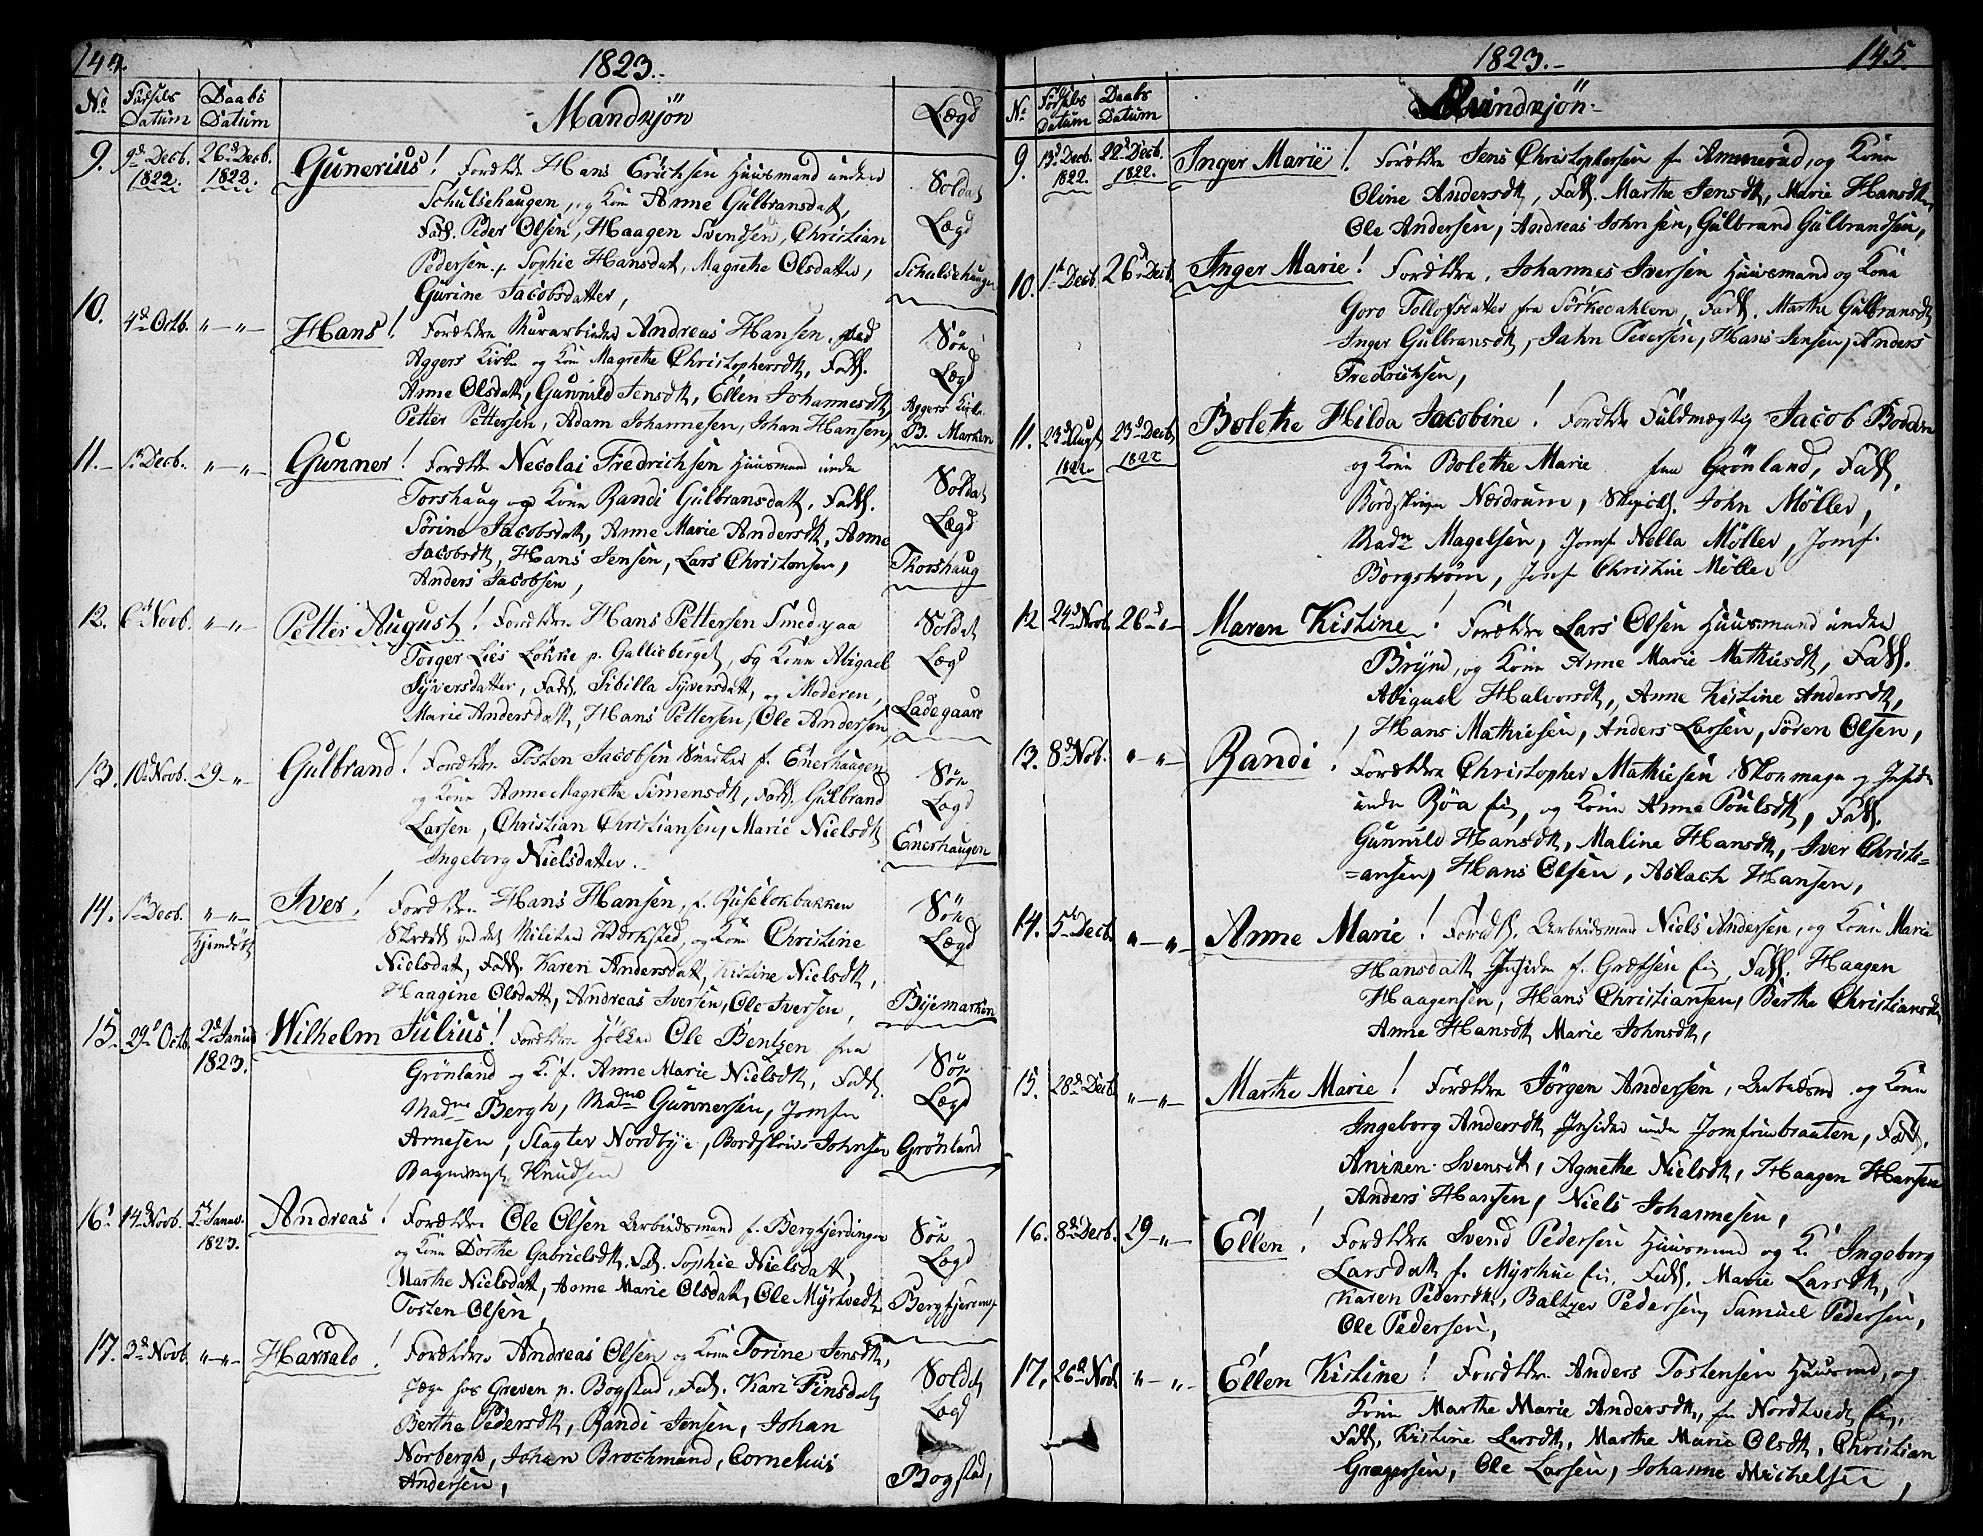 144.
1823.-
No Fødsels Datum Daabs Datum -Mandkjön Lægd
9. 9d Decb. 1822. 26d Decb. 1823. Gunerius! Forældre Hans Erichsen Huusmand under Soldat
Schulsehaugen, og Kone Anne Gulbransdatt, Lægd
Fadd. Peder Olsen, Haagen Svendsen, Christian
Pedersen, Sophie Hansdat, Magrethe Olsdatter, Schulsehaugen
Gurine Jacobsdatter,
10. 4d Octb. "-"- Hans! Forældre Murarbeider Andreas Hansen, ved Söe
Aggers Kirke og Kone Magrethe Christophersdt, Fadd. Lægd
Anne Olsdatt, Gunnild Jensdt, Ellen Johannesdt, Aggers Kirke
Petter Pettersen, Adam Johannesen, Johan Hansen, B. Marken
11.- 1st Decb. "-"- Gunner! Forældre Necolai Fredrichsen Huusmand under
Torshaug og Kone Randi Gulbransdatt, Fadd. Soldat
Sörine Jacobsdatt, Anne Marie Andersdt, Anne Lægd
Jacobsdt, Hans Jensen, Lars Christensen, Thorshaug
Anders Jacobsen,
12. 6t Novb. "-"- Petter August! Forældre Hans Pettersen Smed paa Soldat
Torger Lies Løkke p. Gallieberget, og Kone Abigael Lægd
Syversdatter, Fadd. Sibilla Syversdatt, og Moderen,
Marie Andersdatt, Hans Pettersen, Ole Andersen, Ladegaard
13. 10d Novb. 29-"- Gulbrand! Forældre Tosten Jacobsen Snedker f. Enerhaugen Söe
og Kone Anne Magrethe Simensdt, Fadd. Gulbrand Lægd
Larsen, Christian Christiansen, Marie Nielsdt Enerhaugen
Ingeborg Nielsdatter.
14. 1st Decb. "-"- Hjemdöbt Iver! Forældre Hans Hansen, f. Ruseløkbakken Söe
Skrædd ved det Militær Værksted, og Kone Christine Lægd
Nielsdat, Fadd. Karen Andersdatt, Kistine Nielsdt,
Haagine Olsdatt, Andreas Iversen, Ole Iversen, Bijemarken
15. 29d Octb. 2d Januar 1823. Wilhelm Julius! Forældre Høkker Ole Bentzen fra Söe
Grönland og K. f. Anne Marie Nielsdt, Fadd. Lægd
Madme Bergh, Madme Gunnersen, Jomfru
Arnesen, Slagter Nordbye, Bordskriver Johnsen Grönland
Knudsen
16. 14d Novb. 5t Januar. 1823. Andreas! Forældre Ole Olsen Arbeidsmand f. Bergfjerdingen Söe
og Kone Dorthe Gabrielsdt. Fad. Sophie Nielsdatt, Lægd
Marthe Nielsdatt, Anne Marie Olsdatt, Ole Myrtvedt Bergfjerding
Tosten Olsen,
17. 3d Novb. "-"- Harrald! Forældre Andreas Olsen og Kone Torine Jensdt,
hos Greven p. Bogstad, Fad. Kari Finsdat, Soldat
Berthe Pedersdt, Randi Jensen, Johan Lægd
Norbergh, Johan Brochmand, Cornelius
Andersen, Bogstad,
1823.-
145.
No Fødsels Datum Daabs Datum Qvindkjön-
9. 13d Decb. 1822. 22d Decb. 1822. Inger Marie! Forældre Jens Christophersen fr Ammerud, og Kone
Oline Andersdt, Fadd. Marthe Jensdt, Marie Hansdt,
Ole Andersen, Andreas Johnsen, Gulbrand Gulbrandsen,
10. 1st Decb. 26d Decb. Inger Marie! Forældre, Johannes Iversen Huusmand og Kone
Goro Tollofsdatter fra Sörkedahlen, Fadd. Marthe Gulbransdt
Inger Gulbransdt, Jahn Petersen, Hans Jensen, Anders
Fredrichsen,
11. 23d Augst 1822 23d Decb. 1822 Bolethe Hilda Jacobine! Forældre Fuldmægtig Jacob
og Kone Bolethe Marie fra Grönland, Fadd.
Bordskriver Nærdrum, John Möller,
Madm Magelsen, Jomf Nella Möller, Jomf.
Borgström, Jomf Christine Möller
12 24d Novb. 26d-"- Maren Kistine! Forældre Lars Olsen Huusmand under
Brynd, og Kone Anne Marie Mathisdt, Fadd.
Abigael Halvorsdt, Anne Kistine Andersdt,
Hans Mathiesen, Anders Larsen, Sören Olsen,
13. 8d Novb. "-"- Randi! Forældre Christopher Mathiesen Skomager og Insidr
under Röa Eie, og Kone Anne Poulsdt, Fadd.
Gunnild Hansdt, Maline Hansdt, Iver Christi=
=ansen, Hans Olsen, Aslach Hansen,
14. 5t Decb. "-"- Anne Marie! Foræld. Arbeidsmand Niels Andersen, og Kone Marie
Hansdatt Insider f. Græfsen Eie, Fadd. Haagen
Haagensen, Hans Christiansen, Berthe Christiansdt
Anne Hansdt, Marie Johnsdt,
15. 28d Decb. "-"- Marthe Marie! Forældre Jörgen Andersen, Arbeidsmd og Kone
Ingeborg Andersdt Insider under Jomfrubraaten, Fadd.
Aniken Svensdt, Agnethe Nielsdt, Haagen Hansen
Anders Hansen, Niels Johannesen,
16. 8d Decb. 29-"- Ellen! Forældre Svend Pedersen Huusmand og K. Ingeborg
Larsdatt f. Myrhue Eie, Fadd. Marie Larsdt,
Karen Pedersdt, Baltzer Pedersen, Samuel Pedersen,
Ole Pedersen,
17. 26d Novb "-"- Ellen Kistine! Forældre Anders Tostensen Huusmd, og
Kone Marthe Marie Andersdt, fra Nordtvedt Eie,
Fadd. Kistine Larsdt, Marthe Marie Olsdt, Christian
Grægersen, Ole Larsen, Johanne Michelsen,